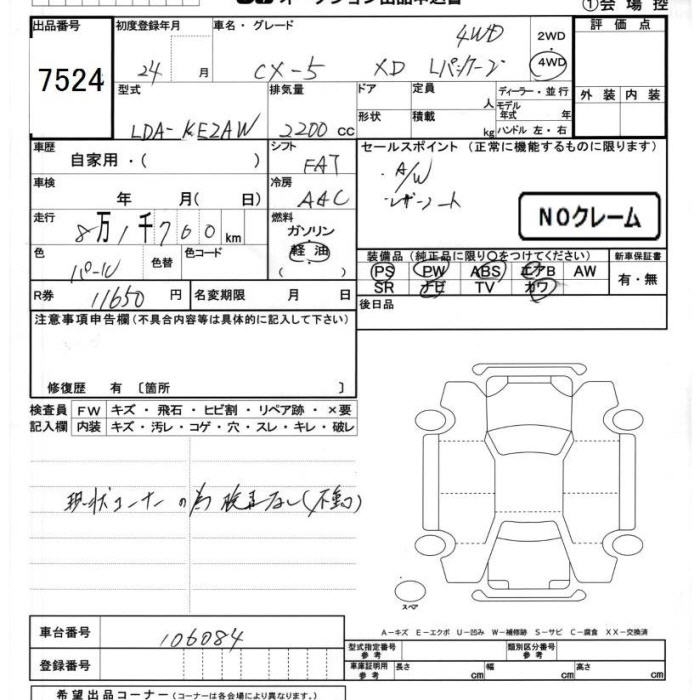 ①会場控
出品番号
7524
初度登録年月
24 月
車名・グレード
4WD
CX-5 XD Lパッケージ
2WD
4WD
評価点
外装 内装
型式
LDA-KE2AW
排気量
2200 cc
ドア
形状
定員 人
積載 kg
ディーラー・並行
モデル年式 年
ハンドル 左・右
車歴
自家用・( )
シフト
FAT
セールスポイント (正常に機能するものに限ります)
・A/W
・レザーシート
NOクレーム
車検
年 月( 日)
冷房
AAC
走行
8万1千760km
燃料
ガソリン
軽油
( )
色
パール
色替
色コード
装備品 (純正品に限り〇をつけてください)
PS PW ABS エアB AW
SR ナビ TV カワ
新車保証書
有・無
R券 11650 円
名変期限 月 日
後日品
注意事項申告欄 (不具合内容等は具体的に記入して下さい)
修復歴 有 〔箇所 〕
検査員記入欄
FW キズ・飛石・ヒビ割・リペア跡・×要
内装 キズ・汚レ・コゲ・穴・スレ・キレ・破レ
現状コーナーの為検査なし(不動)
スペア
A-キズ E-エクボ U-凹み W-補修跡 S-サビ C-腐食 XX-交換済
車台番号 106084
登録番号
型式指定番号 参考
類別区分番号 参考
車庫証明用 参考
長さ cm 幅 cm 高さ cm
希望出品コーナー (コーナーは各会場により異なります。)